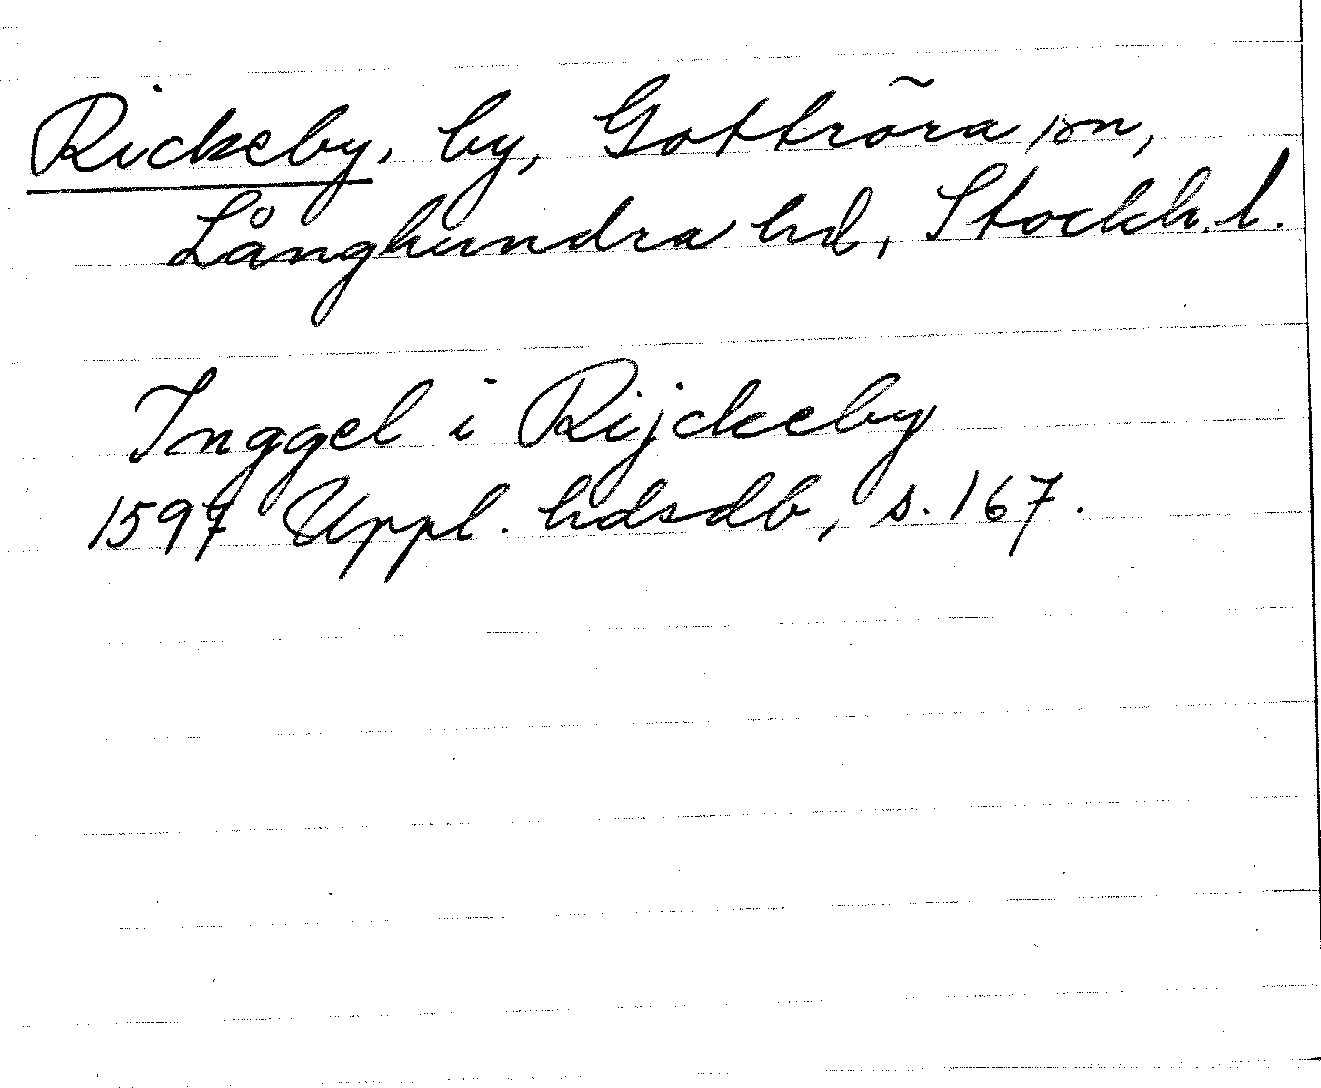 Rickeby, by, Gottröra sn,
Långhundra hd, Stockh. l.
Inggel i Rijckeby
1597 Uppl. hdsdb, s. 167.